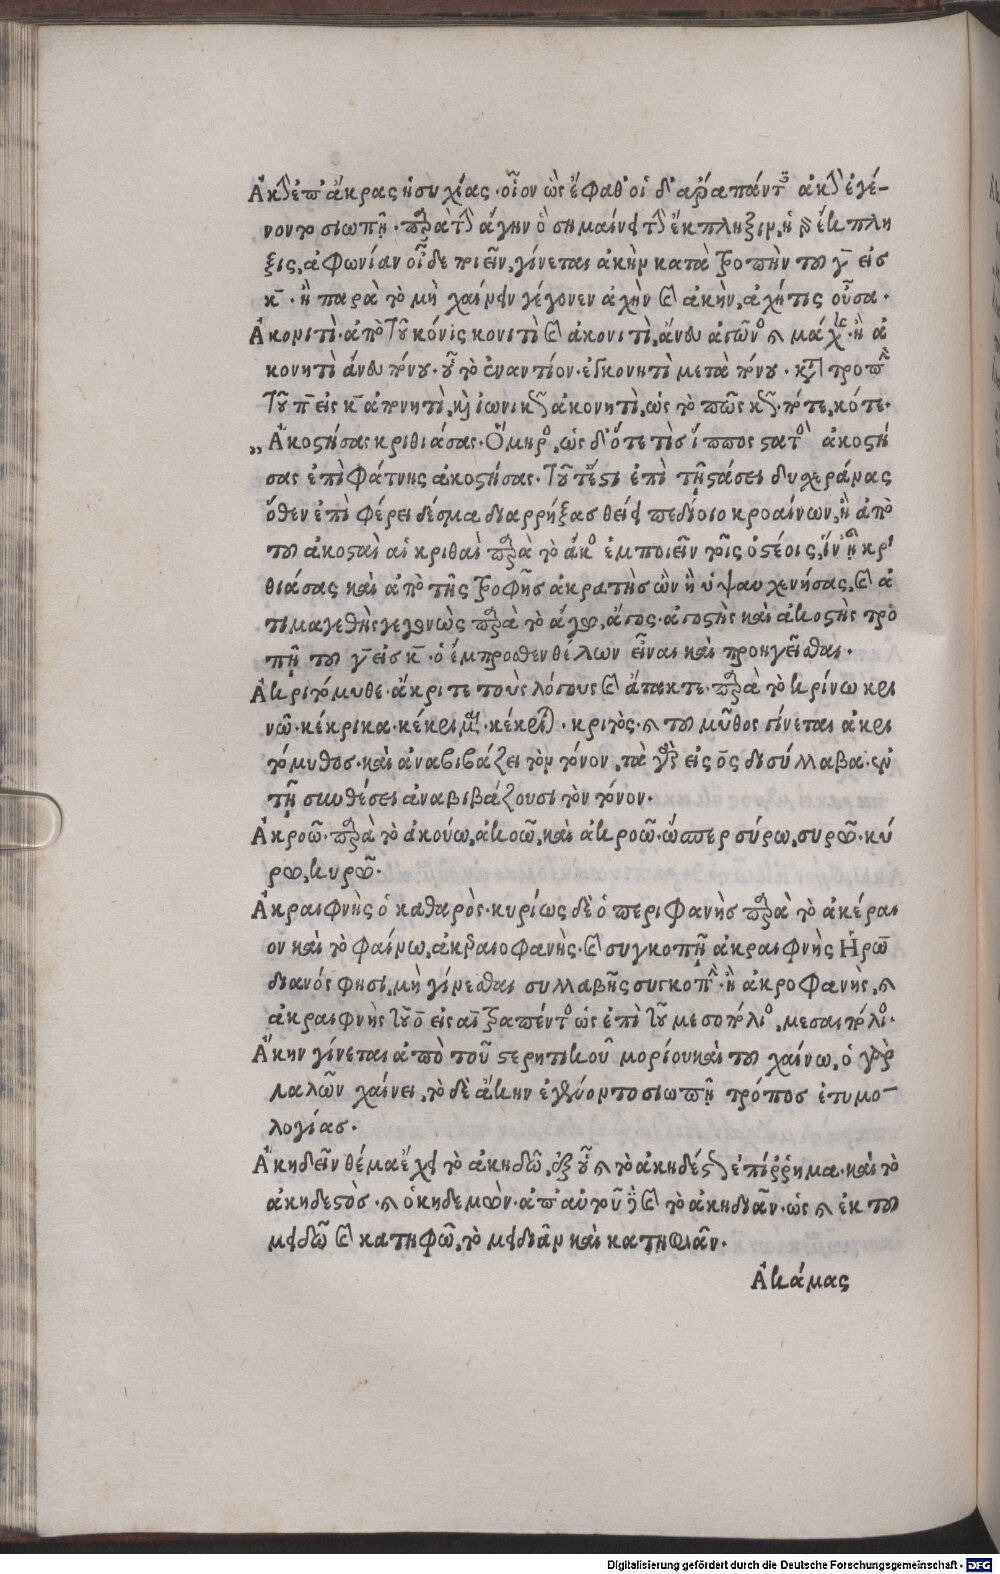 Ἀκὴν ἐπ' ἄκρας ἡσυχίας. οἷον ὣς ἔφαθ' οἱ δ' ἄρα πάντες ἀκὴν ἐγέ-
νοντο σιωπῇ. παρὰ τὴν ἄγην ὃ σημαίνει τὴν ἔκπληξιν, ἡ γὰρ ἔκπλη
ξις, ἀφωνίαν οἶδε ποιεῖν, γίνεται ἀκὴν κατὰ τροπὴν τοῦ γ εἰς
κ. ἢ παρὰ τὸ μὴ χαίνειν γέγονεν ἀχὴν καὶ ἀκὴν, ἀχήτις οὖσα.
Ἀκονιτὶ. ἀπὸ τοῦ κόνις κονιτὶ καὶ ἀκονιτὶ, ἄνευ ἀγῶνος καὶ μάχης. ἢ ἀ
κονητὶ ἄνευ πόνου. οὗ τὸ ἐναντίον. ἐγκονητὶ μετὰ πόνου. κατὰ τροπὴν
τοῦ π εἰς κ ἀπονητὶ, καὶ ἰωνικῶς ἀκονητὶ, ὡς τὸ πῶς κῶς. πότε, κότε.
„ Ἀκοστήσας κριθιάσας. Ὅμηρος, ὡς δ' ὅτε τὶς ἵππος στατὸς ἀκοστή
σας ἐπὶ φάτνης ἀκοστήσας. τουτέστι ἐπὶ τῇ στάσει δυσχεράνας
ὅθεν ἐπιφέρει δέσμα διαρρήξας θείει πεδίοιο κροαίνων, ἢ ἀπὸ
τοῦ ἀκοσταὶ αἱ κριθαὶ παρὰ τὸ ἄκος ἐμποιεῖν τοῖς ὀστέοις, ἵν' ᾖ κρι
θιάσας καὶ ἀπὸ τῆς τροφῆς ἀκρατὴς ὢν ἢ ὑψαυχενήσας, καὶ ἀ
τιμαγελὴς γεγονὼς παρὰ τὸ ἄγω, ἄγος. ἀγοστὴς καὶ ἀκοστὴς τρο
πῇ τοῦ γ εἰς κ. ὁ ἔμπροσθεν θέλων εἶναι καὶ προηγεῖσθαι.
Ἀκριτόμυθε. ἄκριτε τοὺς λόγους καὶ ἄτακτε. παρὰ τὸ κρίνω κρι
νῶ. κέκρικα. κέκριμαι. κέκριται. κριτὸς. καὶ τοῦ μῦθος γίνεται ἀκρι
τόμυθος. καὶ ἀναβιβάζει τὸν τόνον, τὰ γὰρ εἰς ος δισύλλαβα. ἐν
τῇ συνθέσει ἀναβιβάζουσι τὸν τόνον.
Ἀκροῶ. παρὰ τὸ ἀκούω, ἀκοῶ, καὶ ἀκροῶ. ὥσπερ σύρω, συρῶ. κύ
ρω, κυρῶ.
Ἀκραιφνὴς ὁ καθαρὸς. κυρίως δὲ ὁ περιφανὴς παρὰ τὸ ἀκέραι
ον καὶ τὸ φαίνω, ἀκεραιοφανὴς. καὶ συγκοπῇ ἀκραιφνὴς Ἡρω
διανός φησι, μὴ γίνεσθαι συλλαβῆς συγκοπὴν. ἢ ἀκροφανὴς, καὶ
ἀκραιφνὴς τοῦ ο εἰς αι τραπέντος ὡς ἐπὶ τοῦ μεσοπόλιος, μεσαιπόλιος.
Ἄκην γίνεται ἀπὸ τοῦ στερητικοῦ μορίου καὶ τοῦ χαίνω, ὁ γὰρ
λαλῶν χαίνει, τὸ δὲ ἄκην ἐγένοντο σιωπῇ τρόπος ἐτυμο-
λογίας.
Ἀκηδεῖν θέμα ἔχει τὸ ἀκηδῶ, ἐξ οὗ καὶ τὸ ἀκηδέστως ἐπίρρημα. καὶ τὸ
ἀκηδεστὸς. καὶ ὁ κηδεμὼν. ἀπ' αὐτοῦ δὲ καὶ τὸ ἀκηδιᾶν. ὡς καὶ ἐκ τοῦ
μειδῶ καὶ κατηφῶ, τὸ μειδιᾶν καὶ κατηφιᾶν.
Ἀκάμας
Digitalisierung gefördert durch die Deutsche Forschungsgemeinschaft - DFG